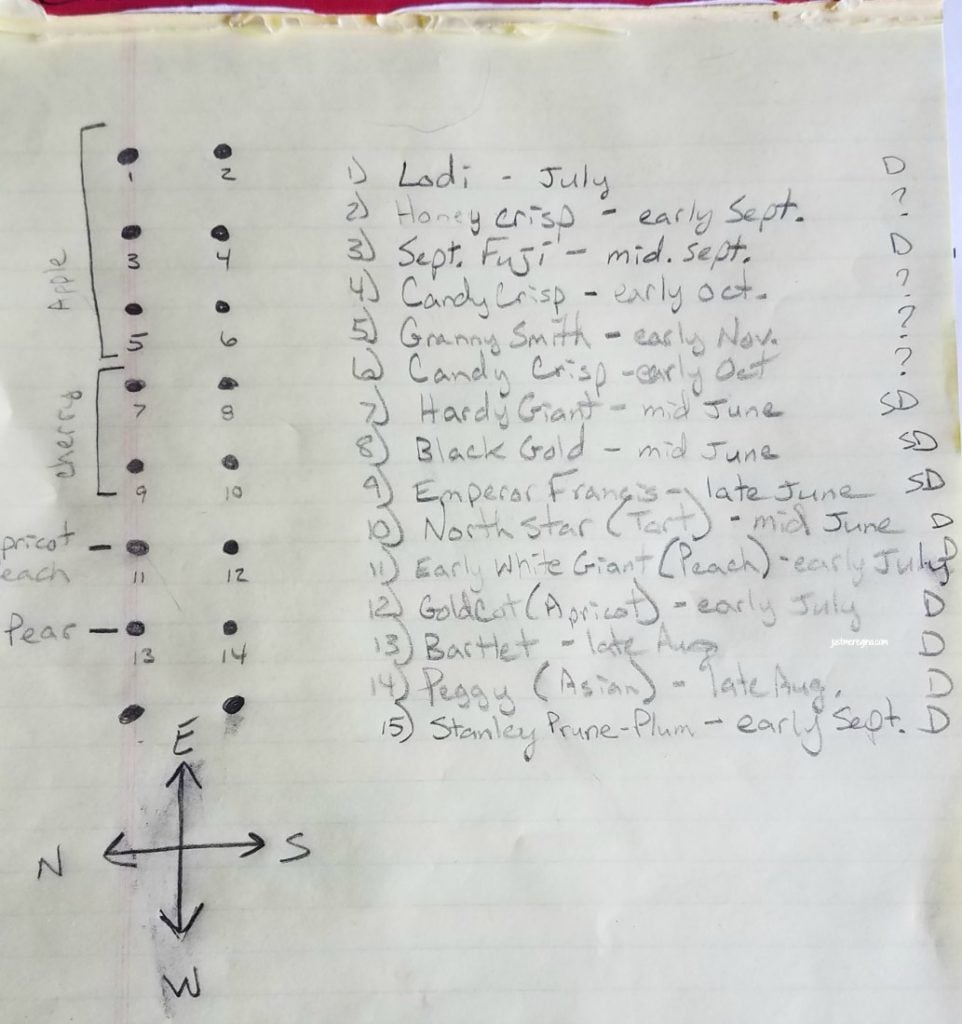 1) Lodi - July D
2) Honey crisp - early Sept. ?
3) Sept. Fuji - mid. sept. D
4) Candy Crisp - early oct. ?
5) Granny Smith - early Nov. ?
6) Candy Crisp - early Oct ?
7) Hardy Giant - mid June SD
8) Black Gold - mid June SD
9) Emperor Francis - late June SD
10) North Star (Tart) - mid June D
11) Early White Giant (Peach) - early July D
12) Goldcot (Apricot) - early July D
13) Bartlet - late Aug D
14) Peggy (Asian) - late Aug. D
15) Stanley Prune-Plum - early Sept. D
Apple
1 2
3 4
5 6
cherry
7 8
9 10
pricot
each
11 12
Pear
13 14
E
N S
W
justmeregina.com